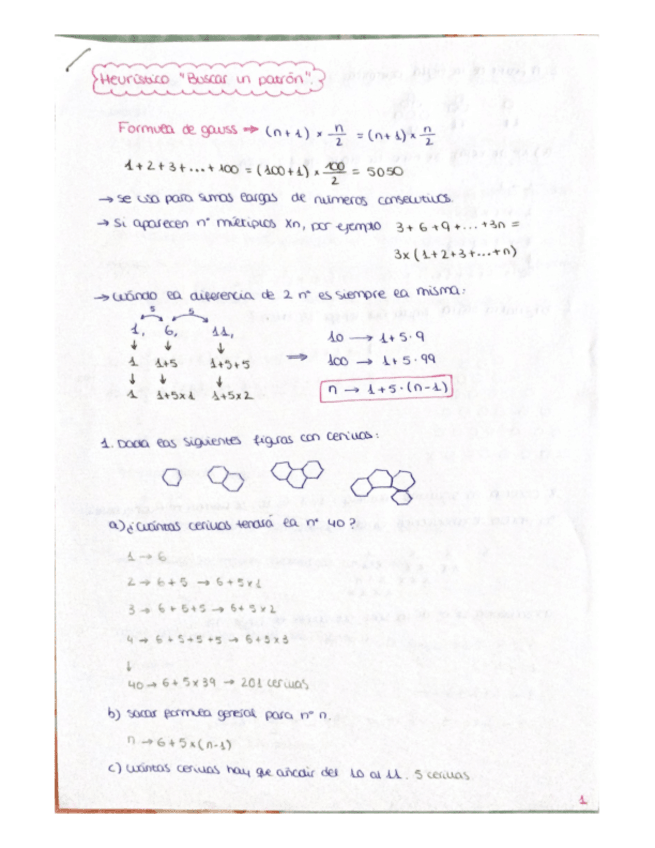 Heurístico "Buscar un patrón".
Formula de gauss ⇒ (n+1) × n/2 = (n+1) × n/2
1+2+3+...+100 = (100+1) × 100/2 = 5050
→ se usa para sumas largas de números consecutivos.
→ Si aparecen nº múltiplos xn, por ejemplo 3+6+9+...+3n =
3x(1+2+3+...+n)
→ cuándo la diferencia de 2 nº es siempre la misma:
5 5
1, 6, 11,
↓ ↓ ↓
1 1+5 1+5+5
↓ ↓ ↓
1 1+5x1 1+5x2
⇒
10 → 1+5·9
100 → 1+5·99
n → 1+5·(n-1)
1. Dada las siguientes figuras con cerillas:
a) ¿cuántas cerillas tendrá la nº 40?
1 → 6
2 → 6+5 → 6+5x1
3 → 6+5+5 → 6+5x2
4 → 6+5+5+5 → 6+5x3
↓
40 → 6+5x39 → 201 cerillas
b) sacar formula general para nº n.
n → 6+5x(n-1)
c) cuántas cerillas hay que añadir del 10 al 11. 5 cerillas
1